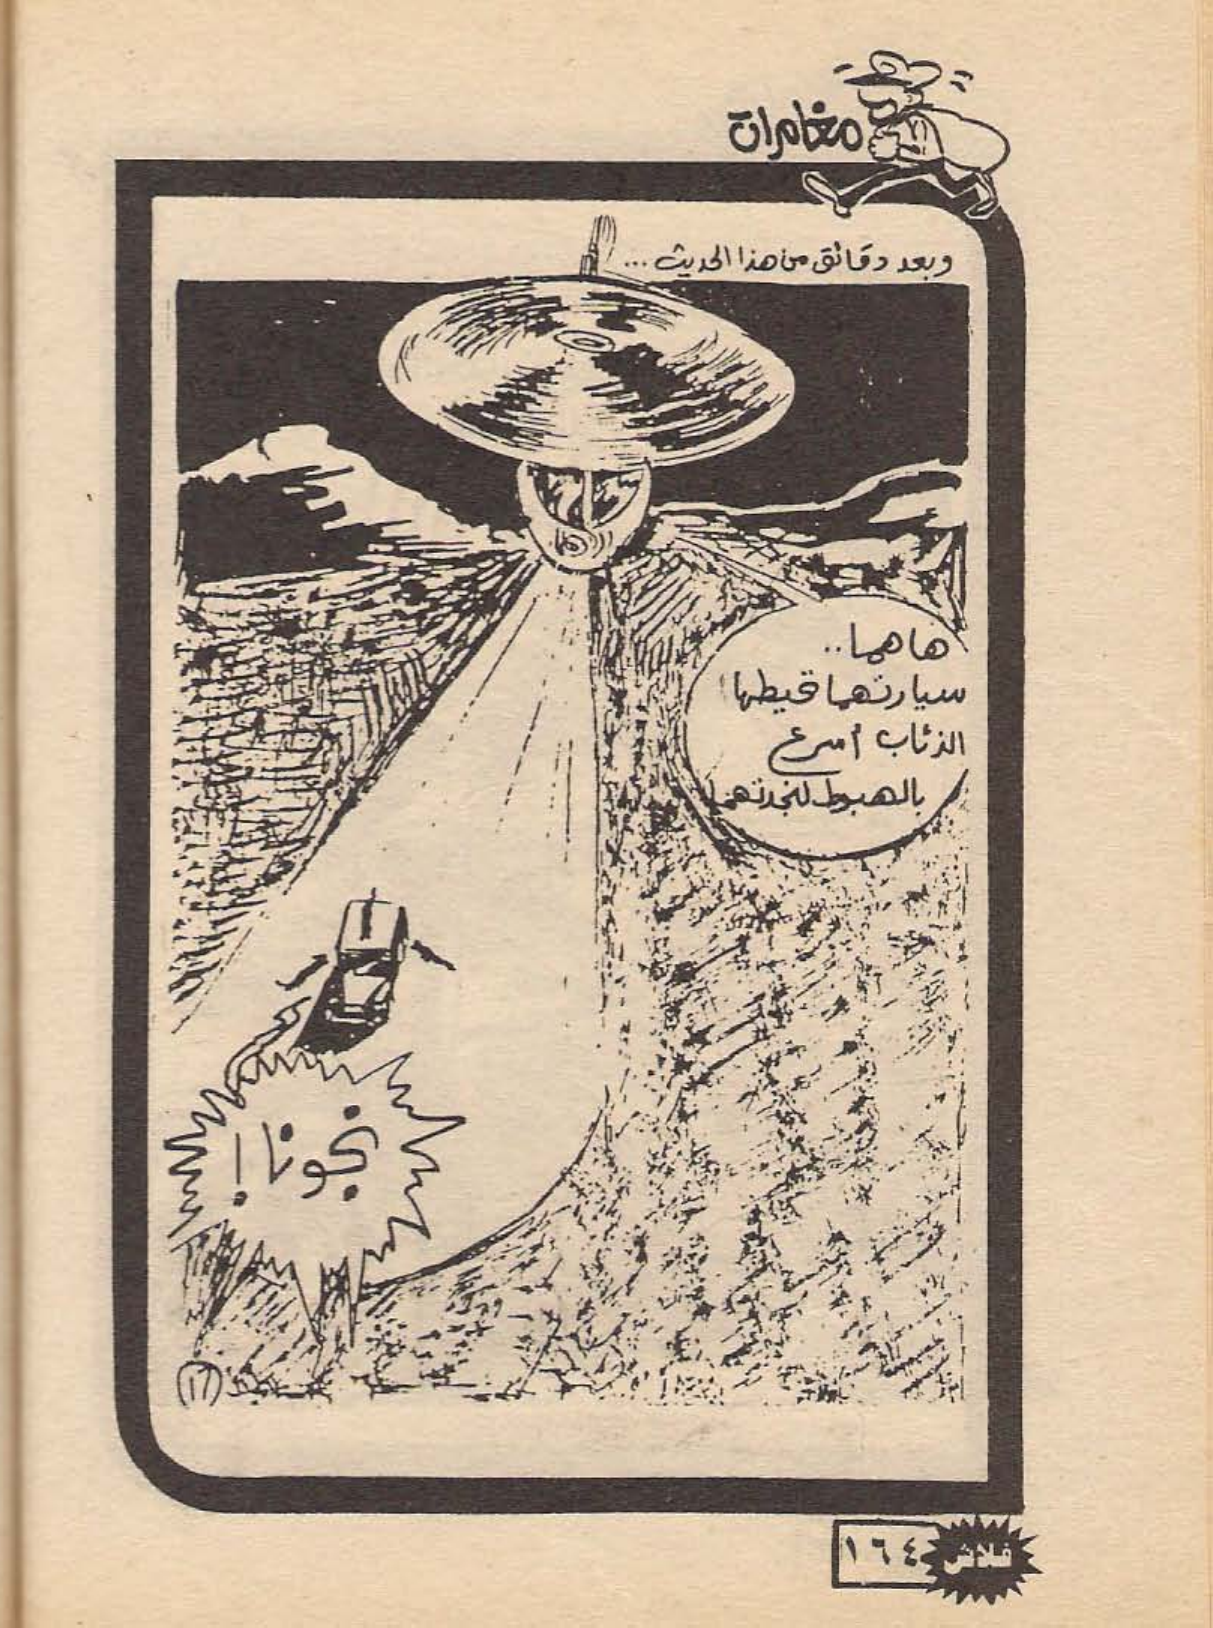 مغامرات
وبعد دقائق من هذا الحديث ...
ها هما ..
سيارتهما تحيطها
الذئاب أسرع
بالهبوط لنجدتهما
نجونا !
(١٦)
١٦٤
فلاش